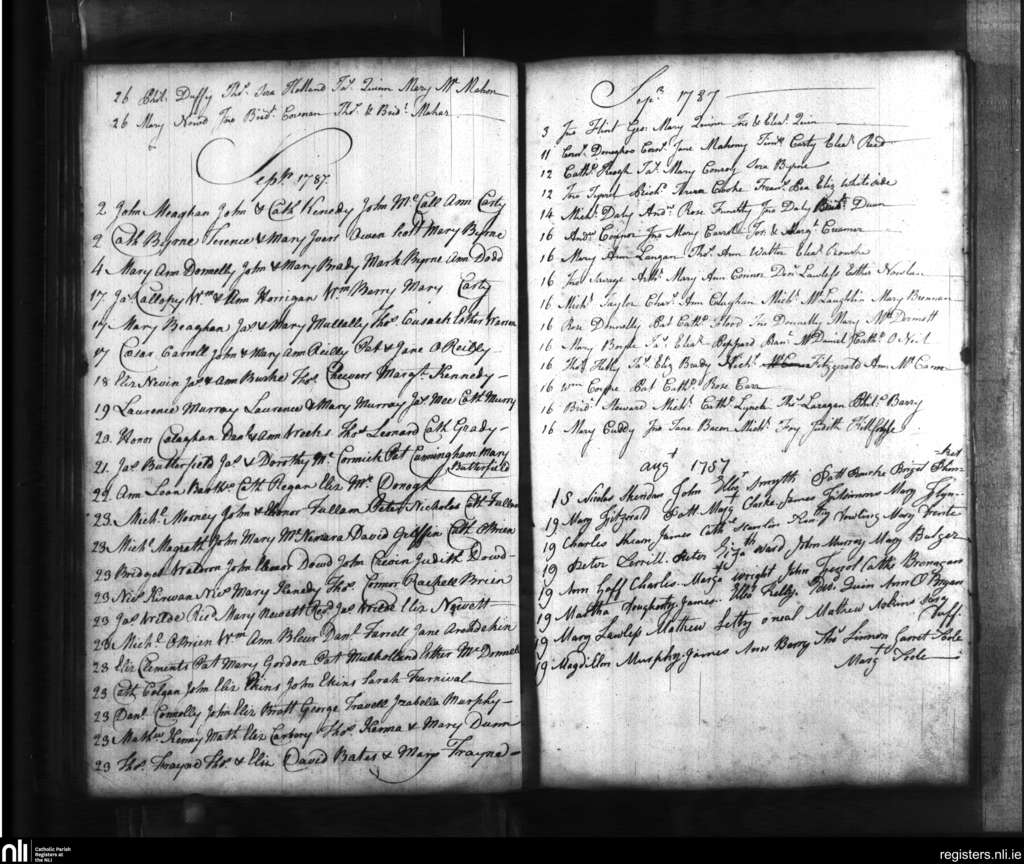 26 Phil. Duffy Thos. Sera Holland Jas. Quinn Mary Mc Mahon
26 Mary Nowd Jno Bridt. Cosnan Thos. & Bridt. Maher
Septr. 1787.
2 John Meaghan John & Cath Kenedy John McCall Ann Carty
2 Cath Byrne Terence & Mary Joers Owen Scott Mary Byrne
4 Mary Ann Donnelly John & Mary Brady Mark Byrne Ann Dodd
17 Jas Callopy Wm & Ann Horrigan Wm Barry Mary Carty
17 Mary Beaghan Jas & Mary Mullally Thos Cusack Esther Warren
17 Cesar Carroll John & Mary Ann Reilly Pat & Jane O Reilly
18 Eliz Nevin Jas & Ann Burke Thos. Cheevers Margt. Kennedy
19 Laurence Murray Laurence & Mary Murray Jas Mee Cath Murry
20. Honor Calaghan Danl & Ann Weeks Thos Leonard Cath Grady
21. Jas Butterfield Jas & Dorothy Mc Cormick Pat Cunningham Mary
Butterfield
22 Ann Leon Cath Regan Eliz Mc Donogh
23. Michl. Mooney John & Elenor Fullam Peter Nicholas Cath Fullam
23 Michl. Magrath John Mary McNamara David Griffin Cath OBrien
23 Bridget Waldron John Elenor Dowd John Crevin Judith Dowd
23 Nics Kirwan Nics Mary Kenedy Thos. Connor Rachell Brien
23 Jas Wilde Ricd Mary Newett Jas Wilde Eliz Newett
23 Michl. OBrien Wm Ann Bleur Danl Farrell Jane Archdekin
23 Eliz Clements Pat Mary Gordon Pat Mulholland Esther Mc Donnell
23 Cath Colgan John Eliz Ekins John Ekins Sarah Farnival
23 Danl. Connolly John Eliz Bratt George Travell Izabella Murphy
23 Mathw Kenny Math Eliz Carbery Thos. Kenna & Mary Dunn
23 Thos. Frayne Thos & Eliz David Bates & Mary Frayne
Sepr. 1787
3 Jno Flint Geo. Mary Quinn Jno & Elear. Quin
11 Cors. Donoghoo Cors. Jane Mahony Timy. Carty Elear. Reed
12 Cathe. Keogh Jas. Mary Conroy Sera Byrne
12 Jno Tyrrel Richd. Clarke Bea Eliz Whiteside
14 Michl. Daly Andw. Rose Jno Daly Bridt. Dunn
16 Andw. Connor Jno Mary Carroll Jos. & Margt. Creamer
16 Mary Ann Langan Thos. Ann Walter Elear. Crowke
16 Jno Savage Arthr. Mary Ann Connor Denl. Lawless Esther Nowlan
16 Michl. Taylor Chars. Ann Calaghan Michl. McLaughlin Mary Brennan
16 Rose Donnelly Pat Cathe. Flood Jno Donnelly Mary McDermott
16 Mary Boyle Elear. Reppard Danl. McDaniel Cathe. O Neil
16 Thos. Kelly Jas. Eliz Brady Michl. Fitzgerald Ann McCann
16 Wm Coyne Pat Cathe. Rose Carr
16 Bridt. Steward Michl. Cathe. Lynch Thos. Laragan Philp. Barry
16 Mary Cuddy Jno Jane Bacon Michl. Fry Judith Killcoffe
augt 1787
18 Nicolas Sheridan John Smyth Patt Bourke Briget
19 Mary Fitzgerald Patt Margt Clarke James Fitsimons Mary Flyn
19 Charles James Cathe Scanlon Mary Foorde
19 Peter Lorrill. Peter Eliza Ward John Murray Mary Balger
19 Ann Goff Charles Margt Wright John Fegot Cathe Bronagan
19 Martha Dougherty James Kelly Quin Ann O Bryan
19 Mary Lawless Mathew Letty oneal Mathew Nolins Lucy
Duff
19 Magdelen Murphy James Ann Barry Thos Linnon Garret Toole
Margt Toole
nli Catholic Parish
Registers at
the NLI
registers.nli.ie